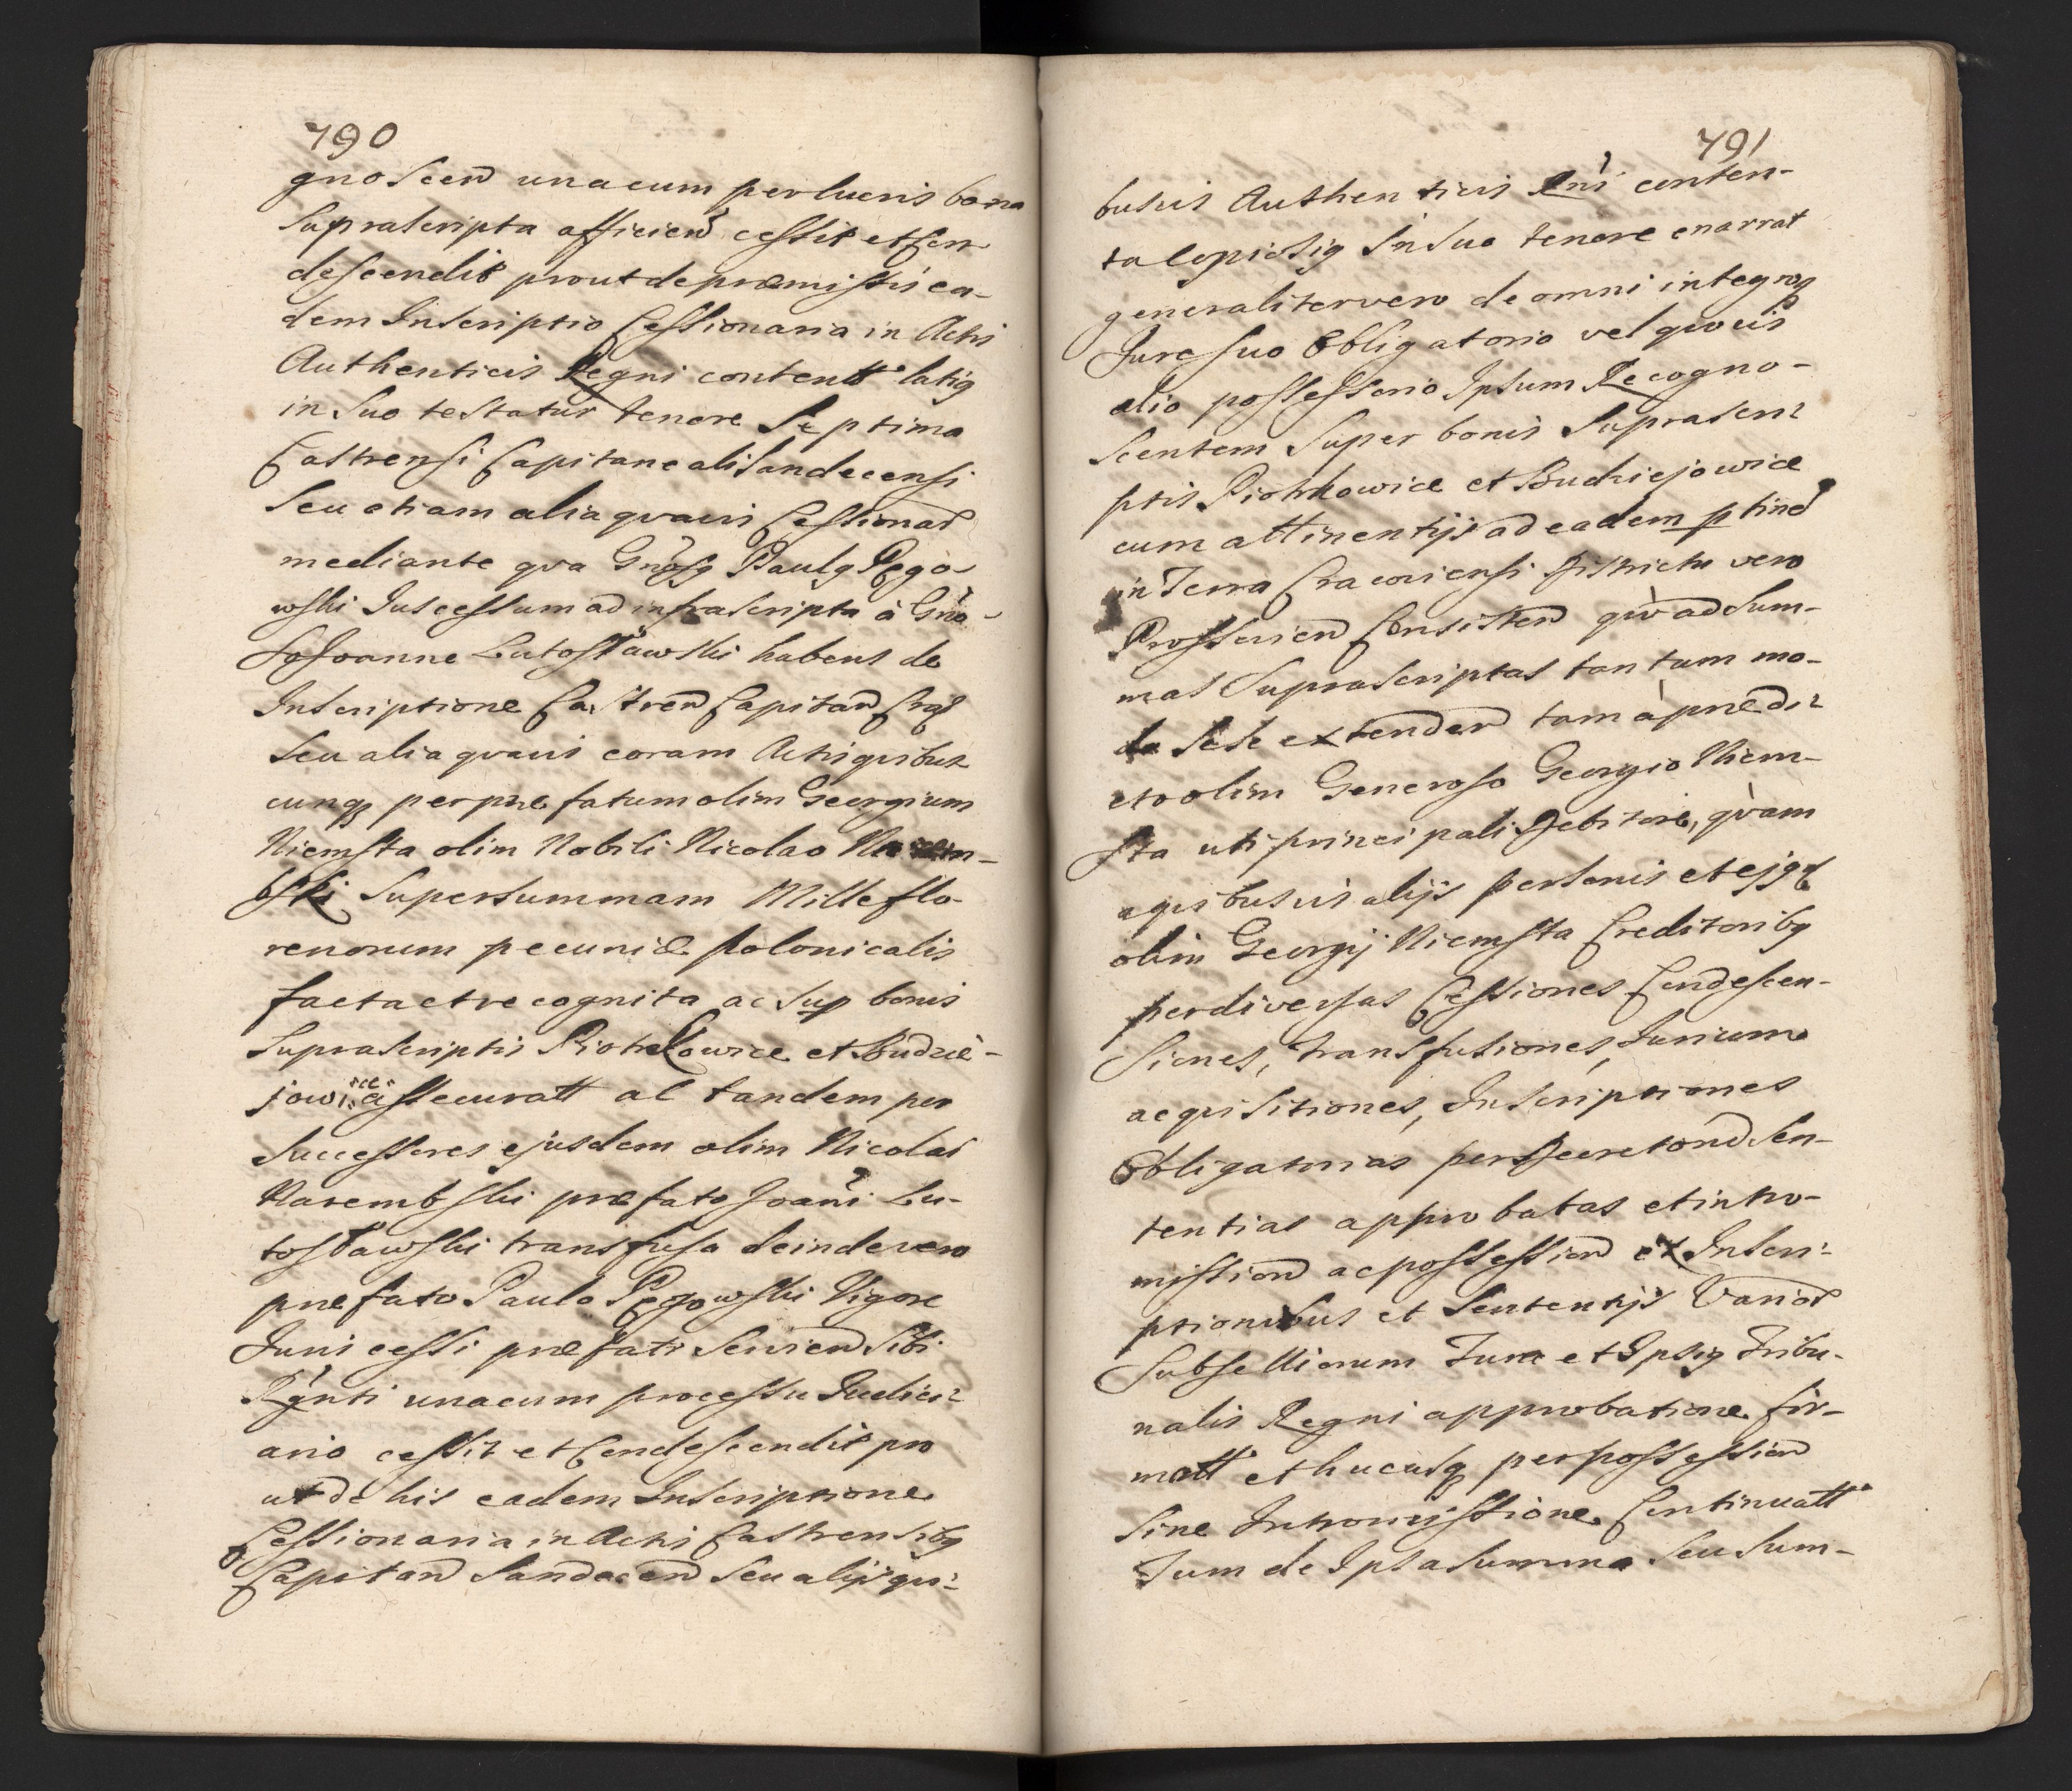 790
gnoscen unacum perlucris bona
Suprascripta afficien cessit et con
descendit prout de præmissis ea-
dem Inscriptio Cessionaria in Actis
Authenticis Regni content latig
in suo testatur tenore Septima
Castrensi Capitaneali Sandecensi
Seu etiam alia quavis Cessionar
mediante qva Gnosg Paulg Pego
wski Jus cessum ad infrascripta à Gno-
So Joanne Lutosławski habens de
Inscriptione Castren Capitan
Seu alia qvavis coram Actis quibus
cunqz per præfatum olim Georgium
Niemsta olim Nobili Nicolao
bski Super summam Mille flo-
renorum pecuniæ polonicalis
facta et recognita ac sup bonis
Suprascriptis Piotrkowice et Budzie-
jowice assecuratt ac tandem per
Successores ejusdem olim Nicolai
Narembski præfato Joani Lu-
tosławski transfusa deinde vero
præfato Paulo Pegowski Vigore
Juris cessi præfati servien sibi
Rgnti unacum processu Judici-
ario cessit et Condescendit pro
ut de his eadem Inscriptione
Cessionaria in Actis Castrensibg
Capitan Sandecen seu alijs qui-
791
busvis Authenticis Rni conten-
ta copiosig in suo tenore enarrat
generaliter vero de omni integroqz
Jure suo Obligatorio vel quovis
alio possessorio Ipsum Recogno-
scentem Super bonis Suprascri-
ptis Piotrkowice et Budziejowice
cum attinentijs ad eadem ptinen
in Terra Cracoviensi Districtu vero
Prossovien Consisten qvo ad Sum-
mas Suprascriptas tantum mo-
do Sese extenden tam à prædi-
cto olim Generoso Georgio Niem-
sta uti principali Debitore, qvam
a quibusvis alijs personis et ejg
olim Georgij Niemsta Creditoribg
per diversas Cessiones Condescen-
siones, transfusiones, Jurium
acquisitiones, Inscriptiones
Obligatorias per Decretor Sen-
tentias approbatas et intro-
mission ac possession ex Inscri-
ptionibus et Sententijs Varior
Subselliorum Jure et Ipsig Tribu-
nalis Regni approbatione fir-
matt et hucusqz per possession
sine Intromissione Continuatt
Tum de Ipsa summa seu sum-